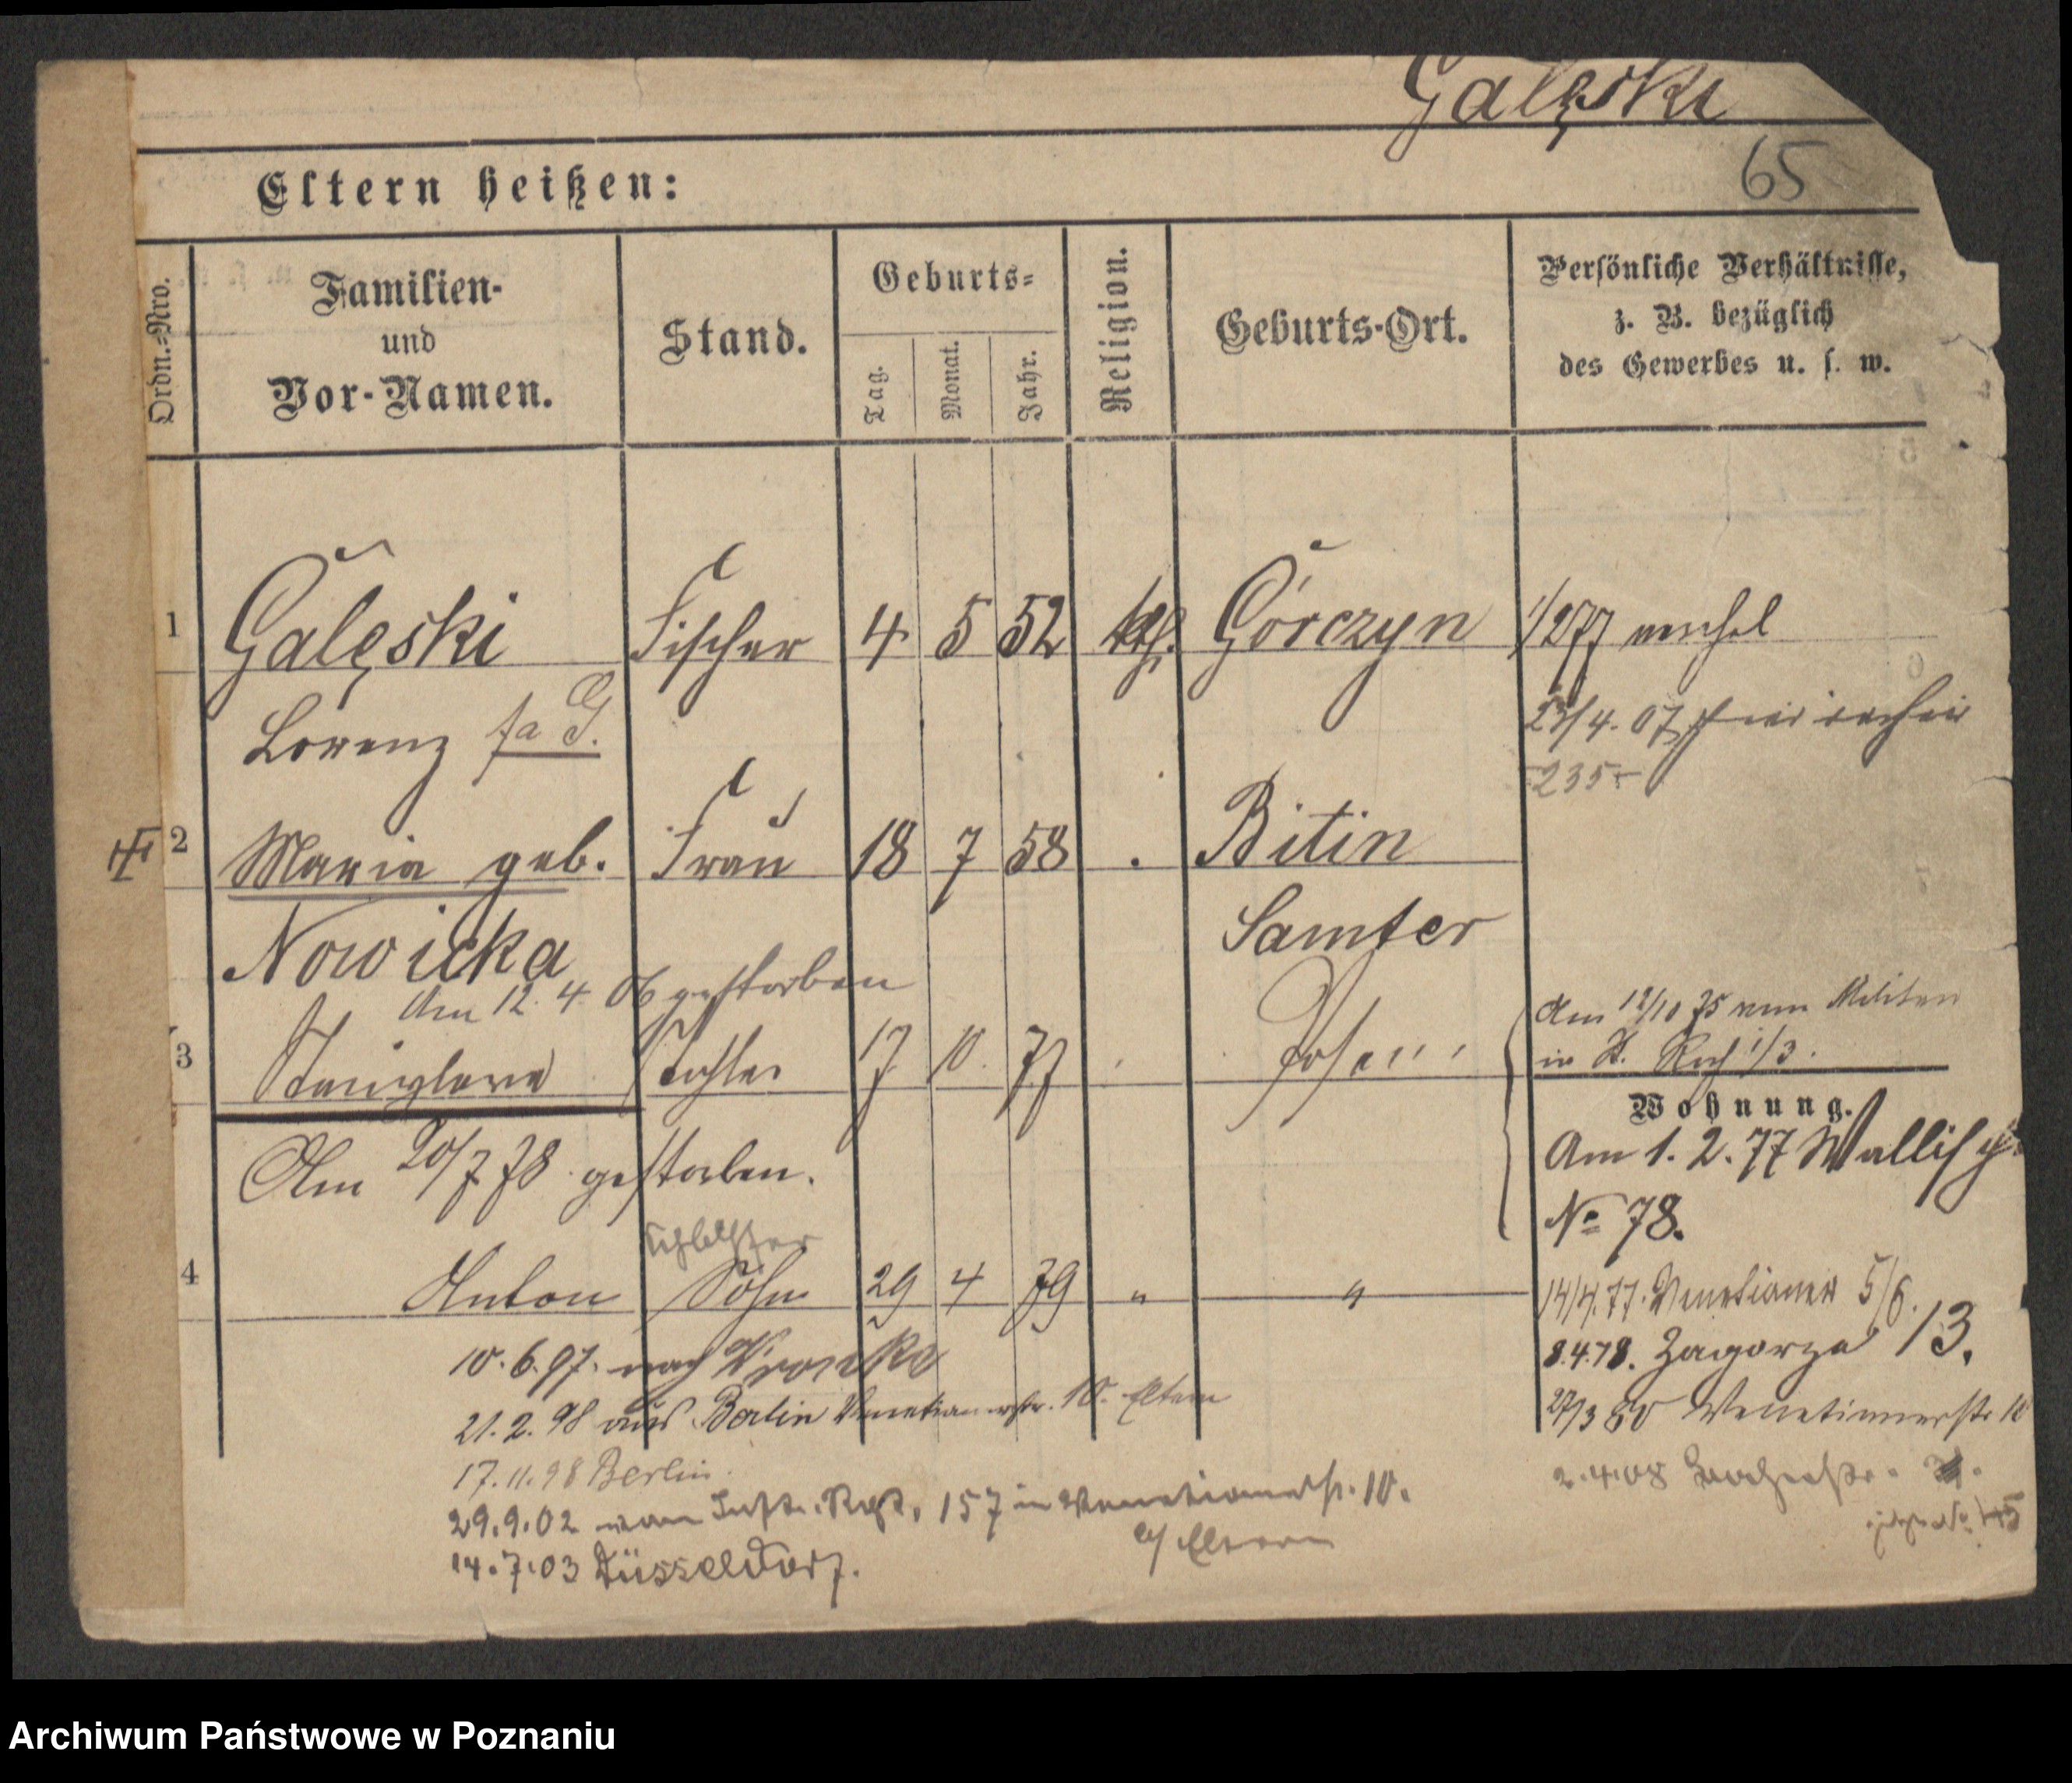 Galęski
65
Eltern heißen:
Ordn.-Nro.
Familien- und Vor-Namen.
Stand.
Geburts-
Tag.
Monat.
Jahr.
Religion.
Geburts-Ort.
Persönliche Verhältnisse,
z. B. bezüglich
des Gewerbes u. s. w.
1 Galęski Fischer 4 5 52 kth. Górczyn
Lorenz
23/4. 07
235
2 Maria geb. Frau 18 7 58 . Bitin
Nowicka Samter
Am 12. 4. 06 gestorben
3 Stanislava Tochter 17 10. 77 Posen
Am 12/10 75 vom Militair
in St. Roch 1/3.
Wohnung.
Am 20/7 78 gestorben.
Am 1. 2. 77 Wallisch
No 78.
4 Anton Sohn 29 4 79 " "
14/4. 77. Venetianer 5/6.
8.4.78. Zagorze 13.
27/3 80 Venetianerstr 10
10. 6. 97. nach Wronke
21. 2. 98 aus Berlin Venetianerstr. 10. Eltern
17. 11. 98 Berlin.
29. 9. 02 vom Inftr. Rgt. 157 in Venetianerstr. 10.
Eltern
14. 7. 03 Düsseldorf.
2. 4. 08
Archiwum Państwowe w Poznaniu